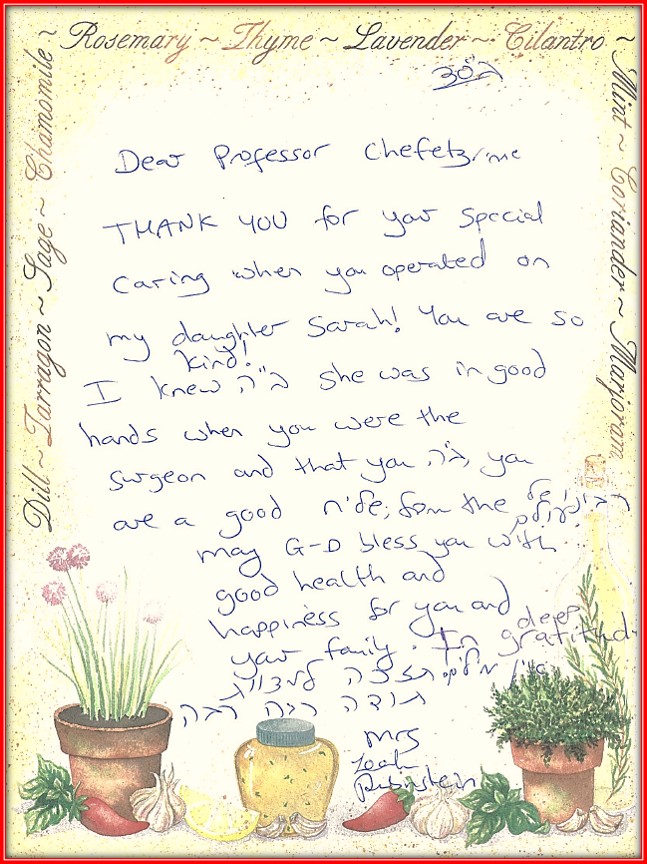 Rosemary ~ Thyme ~ Lavender ~ Cilantro ~
Mint ~ Coriander ~ Marjoram
Dill ~ Tarragon ~ Sage ~ Chamomile ~
בס"ד
Dear Professor Chefetz,
THANK YOU for your special
caring when you operated on
my daughter Sarah! You are so
kind!
I knew ב"ה she was in good
hands when you were the
surgeon and that you, ב"ה, you
are a good שליח; from the רבונו של
עולם
may G-D bless you with
good health and
happiness for you and
your family. In deep gratitude
אין מילים. תזכה למצוות
תודה רבה רבה
Mrs
Leah
Rubinstein